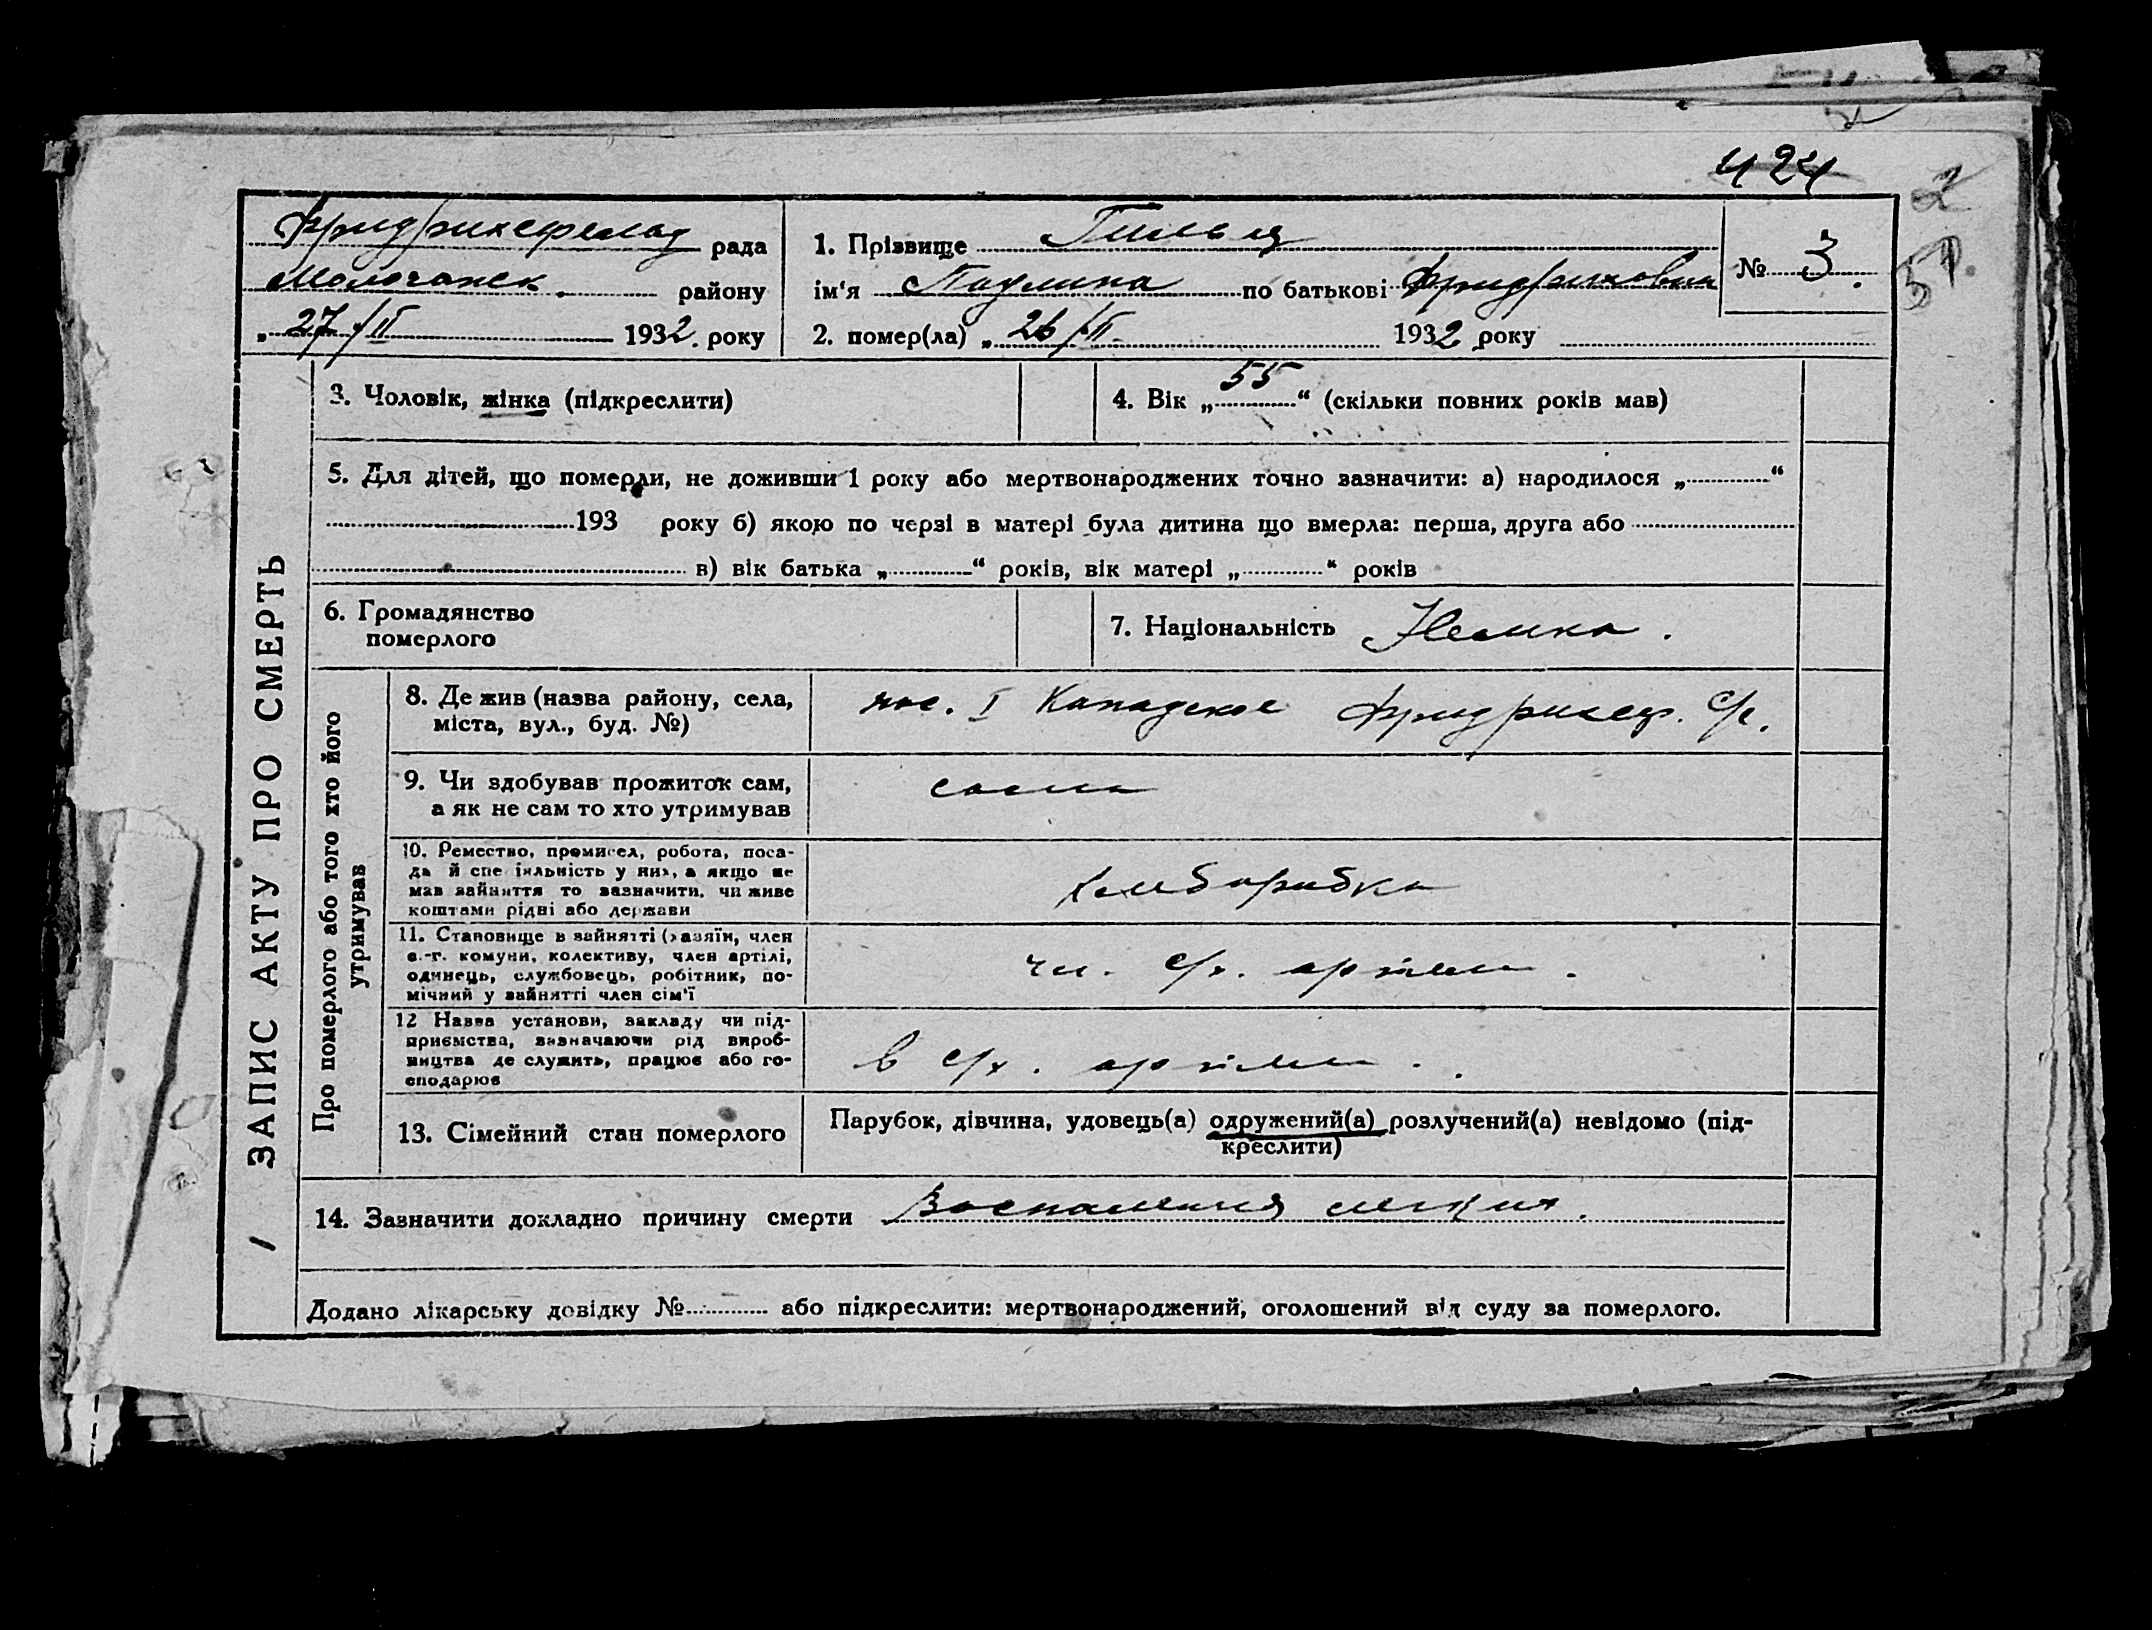 424
2
51.
Фридрихсфельд рада
Молочанск. району
„27/II 1932. року
1. Прізвище Гильц
ім'я Паулина по батькові Фридриховна
2. помер(ла) „26/II 1932 року
№ 3.
ЗАПИС АКТУ ПРО СМЕРТЬ
3. Чоловік, жінка (підкреслити)
4. Вік „55“ (скільки повних років мав)
5. Для дітей, що померли, не доживши 1 року або мертвонароджених точно зазначити: а) народилося „ “
193 року б) якою по черзі в матері була дитина що вмерла: перша, друга або
в) вік батька „ “ років, вік матері „ “ років
6. Громадянство
померлого
7. Національність Немка.
Про померлого або того хто його
утримував
8. Де жив (назва району, села,
міста, вул., буд. №)
пос. I Канадское Фридрихсф. С/с.
9. Чи здобував прожиток сам,
а як не сам то хто утримував
сама
10. Ремество, промисел, робота, поса-
да й спеціяльність у них, а якщо не
мав зайняття то зазначити, чи живе
коштами рідні або держави
хлеборобка
11. Становище в зайнятті (хазяїн, член
с.-г. комуни, колективу, член артілі,
одинець, службовець, робітник, по-
мічний у зайнятті член сім'ї
чл. с/х. артели.
12 Назва установи, закладу чи під-
приємства, визначаючи рід вироб-
ництва де служить, працює або го-
сподарює
в с/х. артели.
13. Сімейний стан померлого
Парубок, дівчина, удовець(а) одружений(а) розлучений(а) невідомо (під-
креслити)
14. Зазначити докладно причину смерти Воспаления легких.
Додано лікарську довідку № або підкреслити: мертвонароджений, оголошений від суду за померлого.